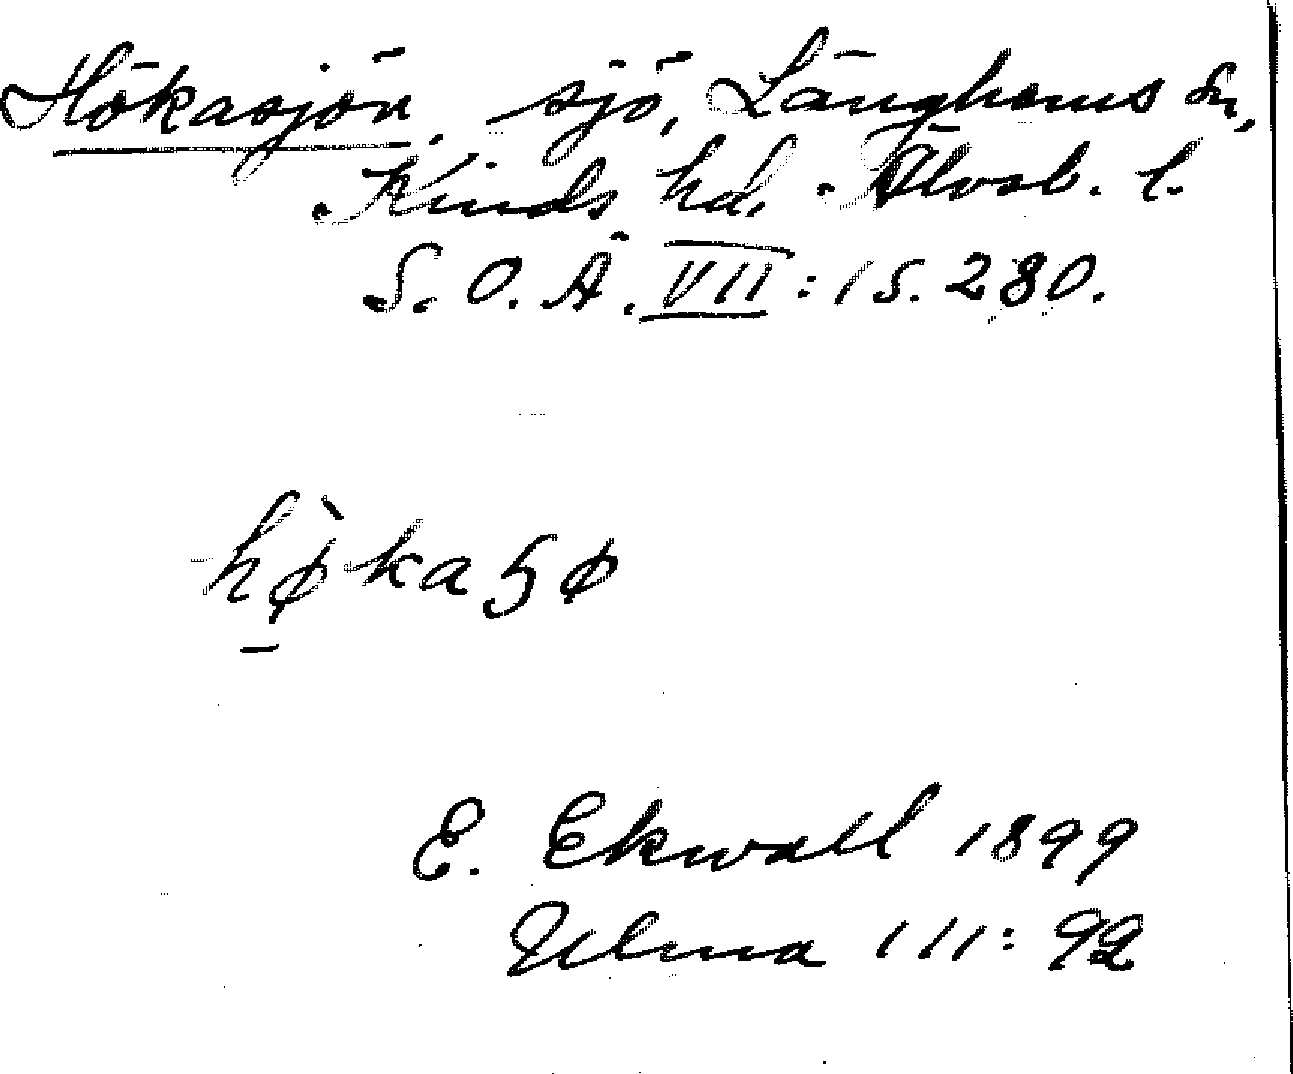 Hökasjön, sjö, Länghems sn,
Kinds hd. Älvsb. l.
S. O. Ä. VII: 1 S. 280.
hø̀kaꞩø
E. Ekwall 1899
Ulma 111: 92